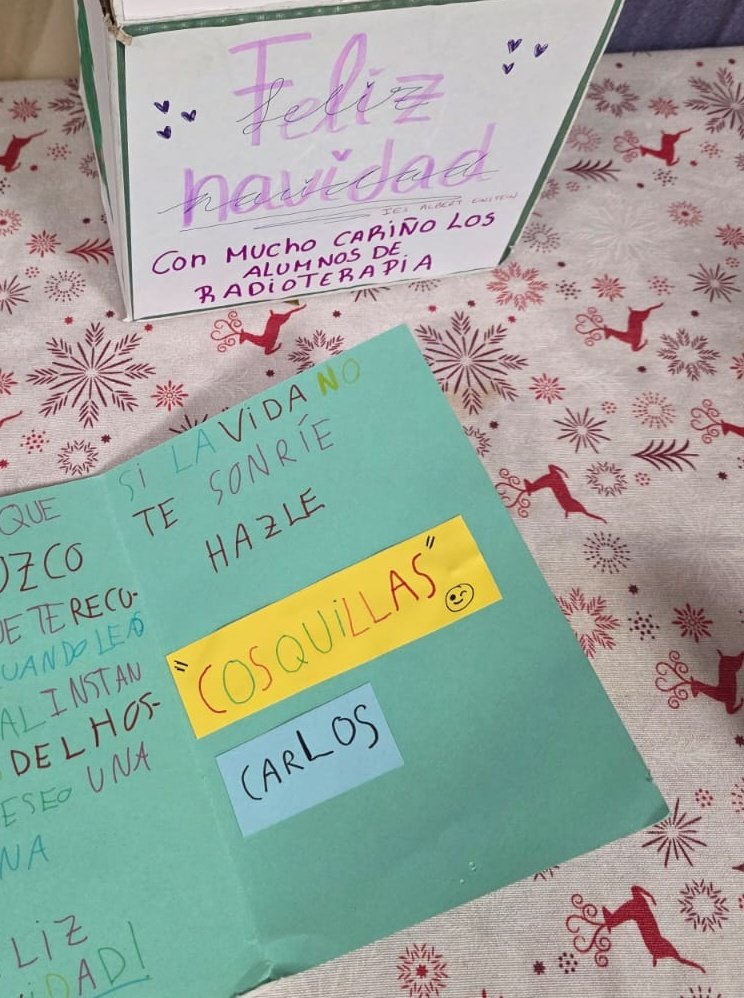 Feliz
feliz
navidad
navidad
IES ALBERT EINSTEIN
CON MUCHO CARIÑO LOS
ALUMNOS DE
RADIOTERAPIA
QUE
OZCO
UE TE RECU-
UANDO LEAS
AL INSTAN
DEL HOS-
ESEO UNA
NA
LIZ
IDAD!
Si LA ViDA NO
TE SONRÍE
HAZLE
"COSQUiLLAS"
CARLOS